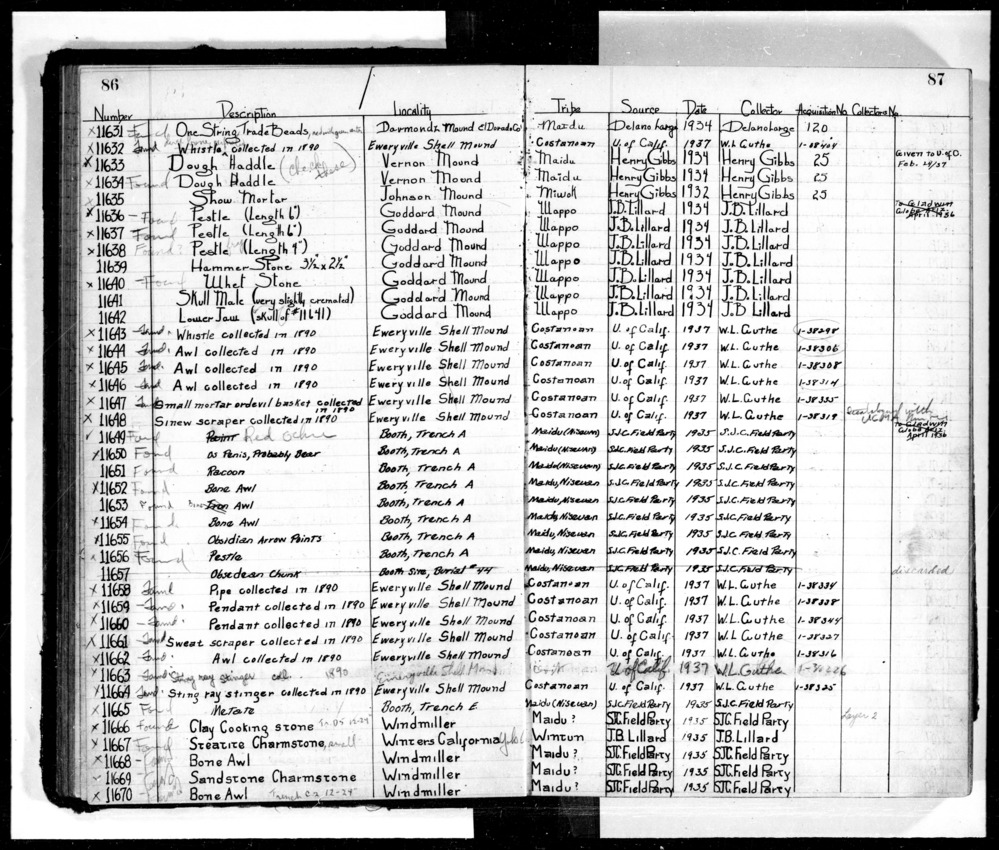 86
87
Number Description Locality Tribe Source Date Collector Acquisition No Collectors No.
x11631 Found One String Trade Beads, Darmondz Mound El Dorado Co Maidu Delano Large 1934 Delano Large 120
x11632 Found Whistle, collected in 1890 Eweryville Shell Mound Costanoan U. of Calif. 1937 W.L. Guthe
x11633 Dough Haddle (check these) Vernon Mound Maidu Henry Gibbs 1934 Henry Gibbs 25 Given to U. of O. Feb. 24/37
x11634 Found Dough Haddle Vernon Mound Maidu Henry Gibbs 1934 Henry Gibbs 25
11635 Show Mortar Johnson Mound Miwok Henry Gibbs 1932 Henry Gibbs 25
x11636 - Found Pestle (Length 6") Goddard Mound Wappo J.B. Lillard 1934 J.B. Lillard To Gladwin April 1936
x11637 Found Pestle (Length 6") Goddard Mound Wappo J.B. Lillard 1934 J.B. Lillard
x11638 Found Pestle (Length 4") Goddard Mound Wappo J.B. Lillard 1934 J.B. Lillard
11639 Hammer Stone 3½ x 2½" Goddard Mound Wappo J.B. Lillard 1934 J.B. Lillard
x11640 - Found Whet Stone Goddard Mound Wappo J.B. Lillard 1934 J.B. Lillard
11641 Skull Male (very slightly cremated) Goddard Mound Wappo J.B. Lillard 1934 J.B. Lillard
11642 Lower Jaw (skull of #11641) Goddard Mound Wappo J.B. Lillard 1934 J.B. Lillard
x11643 Found. Whistle collected in 1890 Eweryville Shell Mound Costanoan U. of Calif. 1937 W.L. Guthe 1-38298
x11644 Found. Awl collected in 1890 Eweryville Shell Mound Costanoan U. of Calif. 1937 W.L. Guthe 1-38306
x11645 Found. Awl collected in 1890 Eweryville Shell Mound Costanoan U. of Calif. 1937 W.L. Guthe 1-38308
x11646 Found Awl collected in 1890 Eweryville Shell Mound Costanoan U. of Calif. 1937 W.L. Guthe 1-38314
x11647 Found Small mortar ordevil basket collected in 1890 Eweryville Shell Mound Costanoan U. of Calif. 1937 W.L. Guthe 1-38355
x11648 Sinew scraper collected in 1890 Eweryville Shell Mound Costanoan U. of Calif. 1937 W.L. Guthe 1-38319
11649 Found Paint Red Ochre Booth, Trench A Maidu (Nisewan) S.J.C. Field Party 1935 S.J.C. Field Party To Gladwin April 1936
x11650 Found Os Penis, Probably Bear Booth, Trench A Maidu (Nisewan) S.J.C. Field Party 1935 S.J.C. Field Party
11651 Found Racoon Booth, Trench A Maidu (Nisewan) S.J.C. Field Party 1935 S.J.C. Field Party
x11652 Found Bone Awl Booth, Trench A Maidu, Nisewan S.J.C. Field Party 1935 S.J.C. Field Party
11653 Found Bone Iron Awl Booth, Trench A Maidu, Nisewan S.J.C. Field Party 1935 S.J.C. Field Party
x11654 Found Bone Awl Booth, Trench A Maidu, Nisewan S.J.C. Field Party 1935 S.J.C. Field Party
x11655 Found Obsidian Arrow Points Booth, Trench A Maidu, Nisewan S.J.C. Field Party 1935 S.J.C. Field Party
x11656 Found Pestle Booth, Trench A Maidu, Nisewan S.J.C. Field Party 1935 S.J.C. Field Party
11657 Obsedean Chunk Booth Site, Burial #44 Maidu, Nisewan S.J.C. Field Party 1935 S.J.C. Field Party discarded
x11658 Found Pipe collected in 1890 Eweryville Shell Mound Costanoan U. of Calif. 1937 W.L. Guthe 1-38334
x11659 - Found. Pendant collected in 1890 Eweryville Shell Mound Costanoan U. of Calif. 1937 W.L. Guthe 1-38338
x11660 - Found. Pendant collected in 1890 Eweryville Shell Mound Costanoan U. of Calif. 1937 W.L. Guthe 1-38344
x11661 - Found. Sweat scraper collected in 1890 Eweryville Shell Mound Costanoan U. of Calif. 1937 W.L. Guthe 1-38327
x11662 Found. Awl collected in 1890 Eweryville Shell Mound Costanoan U. of Calif. 1937 W.L. Guthe 1-38316
x11663 Found Sting ray stinger col. 1890 Emeryville Shell Mound U. of Calif. 1937 W.L. Guthe
x11664 Found. Sting ray stinger collected in 1890 Eweryville Shell Mound Costanoan U. of Calif. 1937 W.L. Guthe 1-38325
x11665 Found Metate Booth, Trench E Maidu (Nisewan) S.J.C. Field Party 1935 S.J.C. Field Party
x11666 Found Clay Cooking stone Windmiller Maidu? SJC Field Party 1935 SJC Field Party Layer 2
x11667 Found Steatite Charmstone, small Winters California Yolo Co Wintun J.B. Lillard 1935 J.B. Lillard
x11668 - Found Bone Awl Windmiller Maidu? SJC Field Party 1935 SJC Field Party
11669 - Found Sandstone Charmstone Windmiller Maidu? SJC Field Party 1935 SJC Field Party
x11670 - Found Bone Awl Trench C2 12-24" Windmiller Maidu? SJC Field Party 1935 SJC Field Party